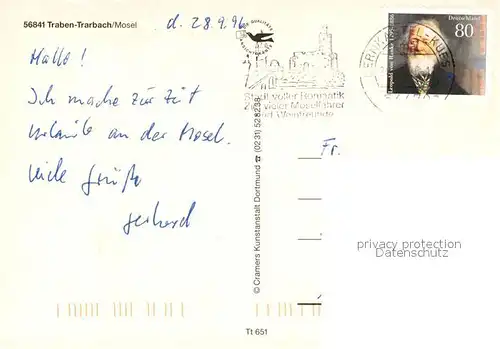 56841 Traben-Trarbach/Mosel
d. 28.9.96
Hallo!
Ich mache zur Zeit
Urlaub an der Mosel.
Viele Grüße
Gerhard
Stadt voller Romantik
Ziel vieler Moselfahrer
und Weinfreunde
Deutschland
80
Leopold von Ranke
BERNKASTEL-KUES
Fr.
© Cramers Kunstanstalt Dortmund ☎ (0231) 528238
privacy protection
Datenschutz
Tt 651